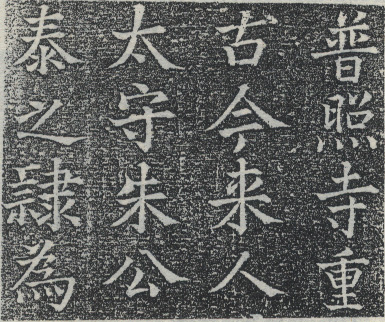 普照寺重
古今来人
太守朱公
泰之隸為